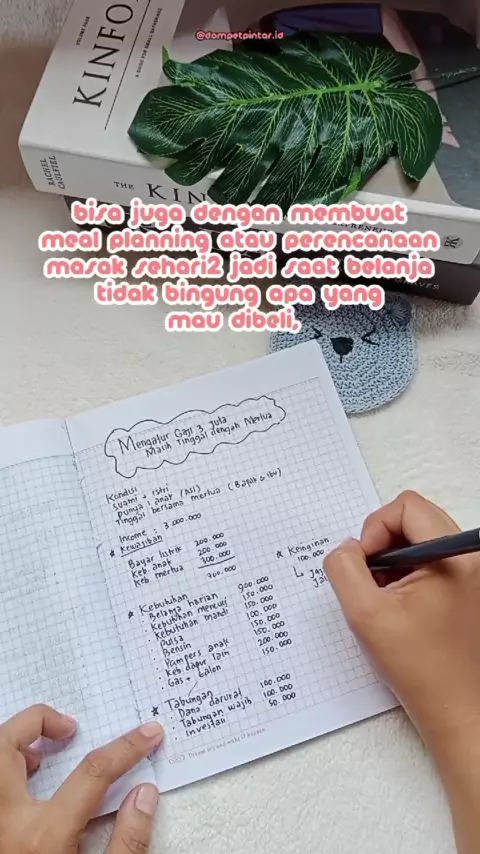 @dompetpintar.id
VOLUME FOUR
KINFO
A GUIDE FOR SMALL GATHERINGS
RACHEL CAULFIEL
THE KIN
bisa juga dengan membuat
meal planning atau perencanaan
masak sehari2 jadi saat belanja
tidak bingung apa yang
mau dibeli,
Mengatur Gaji 3 juta
Masih Tinggal dengan Mertua
Kondisi
Suami + Istri
Punya 1 anak (ASI)
Tinggal bersama mertua (Bapak & Ibu)
Income : 3.000.000
★ Kewajiban
Bayar listrik 200.000
Keb. anak 200.000
Keb. mertua 300.000
700.000
★ Keinginan
100.000
★ Kebutuhan
· Belanja harian 900.000
· Kebutuhan mencuci 150.000
· Kebutuhan mandi 150.000
· Pulsa 100.000
· Bensin 150.000
· Pampers anak 150.000
· Keb. dapur lain 200.000
· Gas + galon 150.000
★ Tabungan
· Dana darurat 100.000
· Tabungan wajib 100.000
· Investasi 50.000